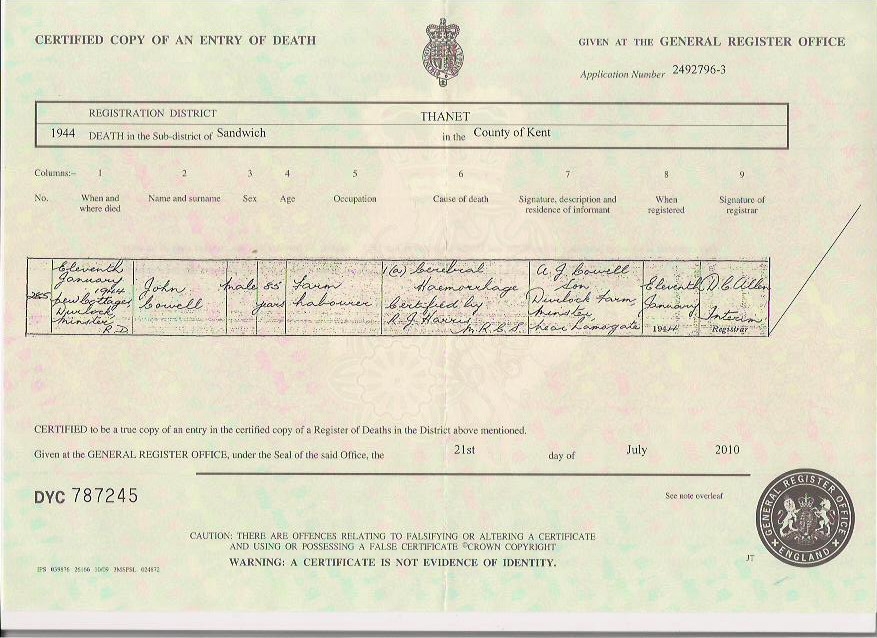 CERTIFIED COPY OF AN ENTRY OF DEATH
GIVEN AT THE GENERAL REGISTER OFFICE
Application Number 2492796-3
REGISTRATION DISTRICT THANET
1944 DEATH in the Sub-district of Sandwich in the County of Kent
Columns:- 1 2 3 4 5 6 7 8 9
No. When and where died Name and surname Sex Age Occupation Cause of death Signature, description and residence of informant When registered Signature of registrar
285
Eleventh
January
1944
New Cottages
Durlock
Minster
R.D
John
Cowell
Male
85
years
Farm
Labourer
1(a) Cerebral
Haemorrhage
Certified by
R. J. Harris
M.R.C.S.
A. J. Cowell
Son
Durlock Farm
Minster
near Ramsgate
Eleventh
January
1944
D C Allen
Interim
Registrar
CERTIFIED to be a true copy of an entry in the certified copy of a Register of Deaths in the District above mentioned.
Given at the GENERAL REGISTER OFFICE, under the Seal of the said Office, the 21st day of July 2010
DYC 787245
See note overleaf
CAUTION: THERE ARE OFFENCES RELATING TO FALSIFYING OR ALTERING A CERTIFICATE
AND USING OR POSSESSING A FALSE CERTIFICATE ©CROWN COPYRIGHT
WARNING: A CERTIFICATE IS NOT EVIDENCE OF IDENTITY.
GENERAL REGISTER OFFICE
ENGLAND
JT